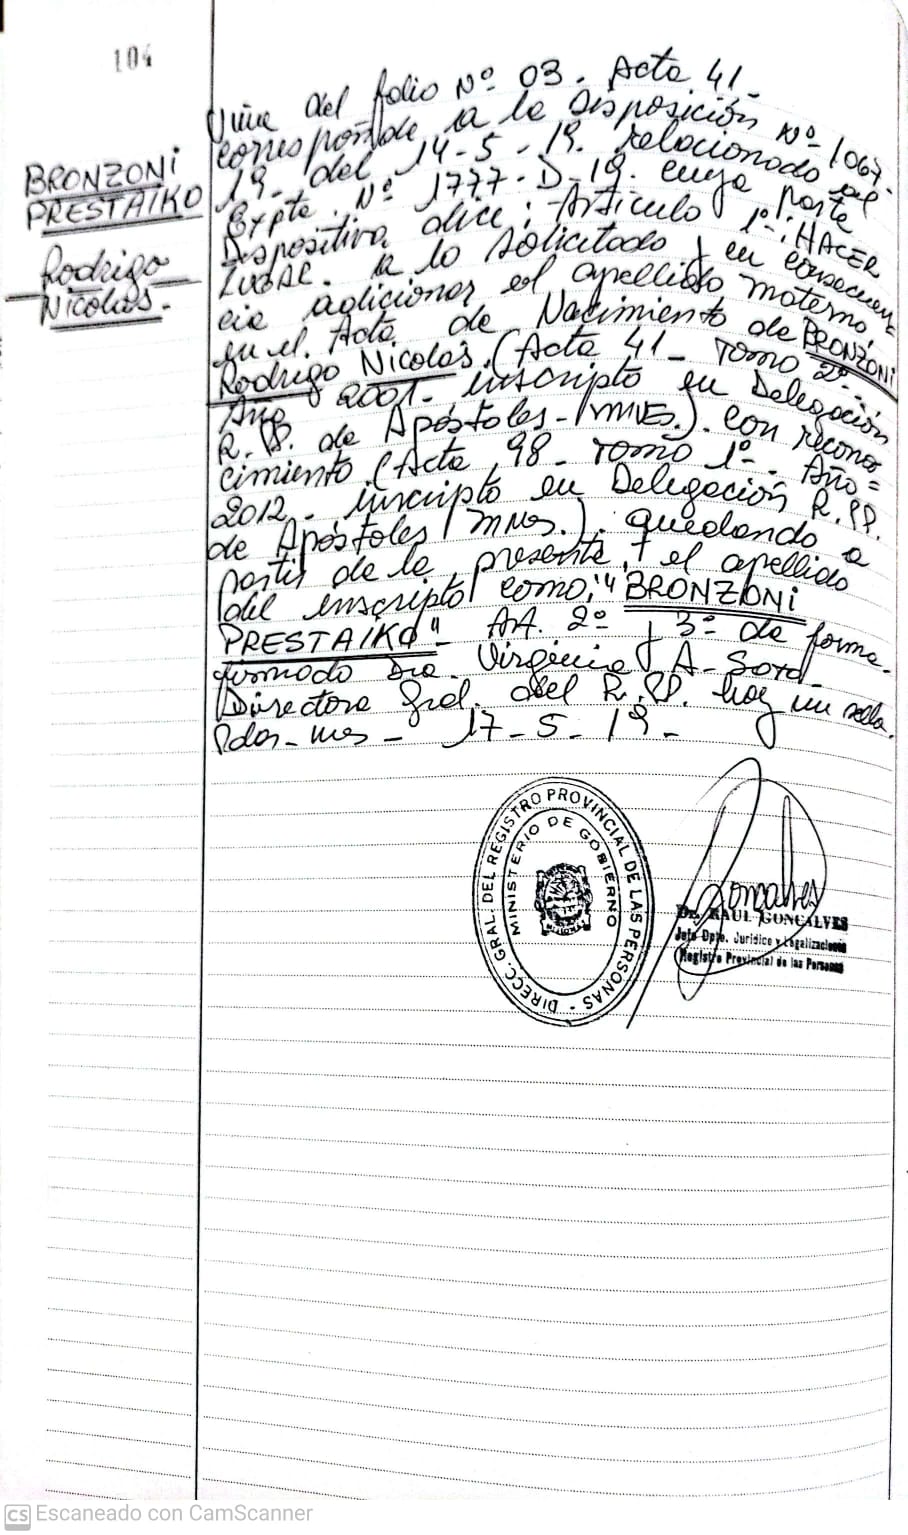 104
BRONZONI
PRESTAIKO
Rodrigo
Nicolás.
Viene del folio Nº 03. Acta 41_
corresponde a la Disposición Nº 1067-
19_ del 14-5-19. relacionado al
Expte. Nº 1777-D-19. cuya parte
Dispositiva dice: Artículo 1º: HACER
LUGAR. a lo solicitado y en consecuen
cia adicionar el apellido materno
en el Acta de Nacimiento de BRONZONI
Rodrigo Nicolás. (Acta 41_ Tomo 2º_
Año 2001_ inscripto en Delegación
R.P. de Apóstoles-(MNES.). con recono
cimiento (Acta 98_ Tomo 1º_ Año=
2012_ inscripto en Delegación R.PP.
de Apóstoles (MNes.). quedando a
partir de la presente, el apellido
del inscripto como: "BRONZONI
PRESTAIKO"_ Art. 2º y 3º de forma.
firmado Dra. Virginia A. Soto
Directora Gral. del R.PP. hay un sello.
Pdas_Mes_ 17-5-19_
DIRECC. GRAL. DEL REGISTRO PROVINCIAL DE LAS PERSONAS -
MINISTERIO DE GOBIERNO
MISIONES
Goncalves
Dr. RAUL GONCALVES
Jefe Dpto. Jurídico y Legalizaciones
Registro Provincial de las Personas
CS Escaneado con CamScanner